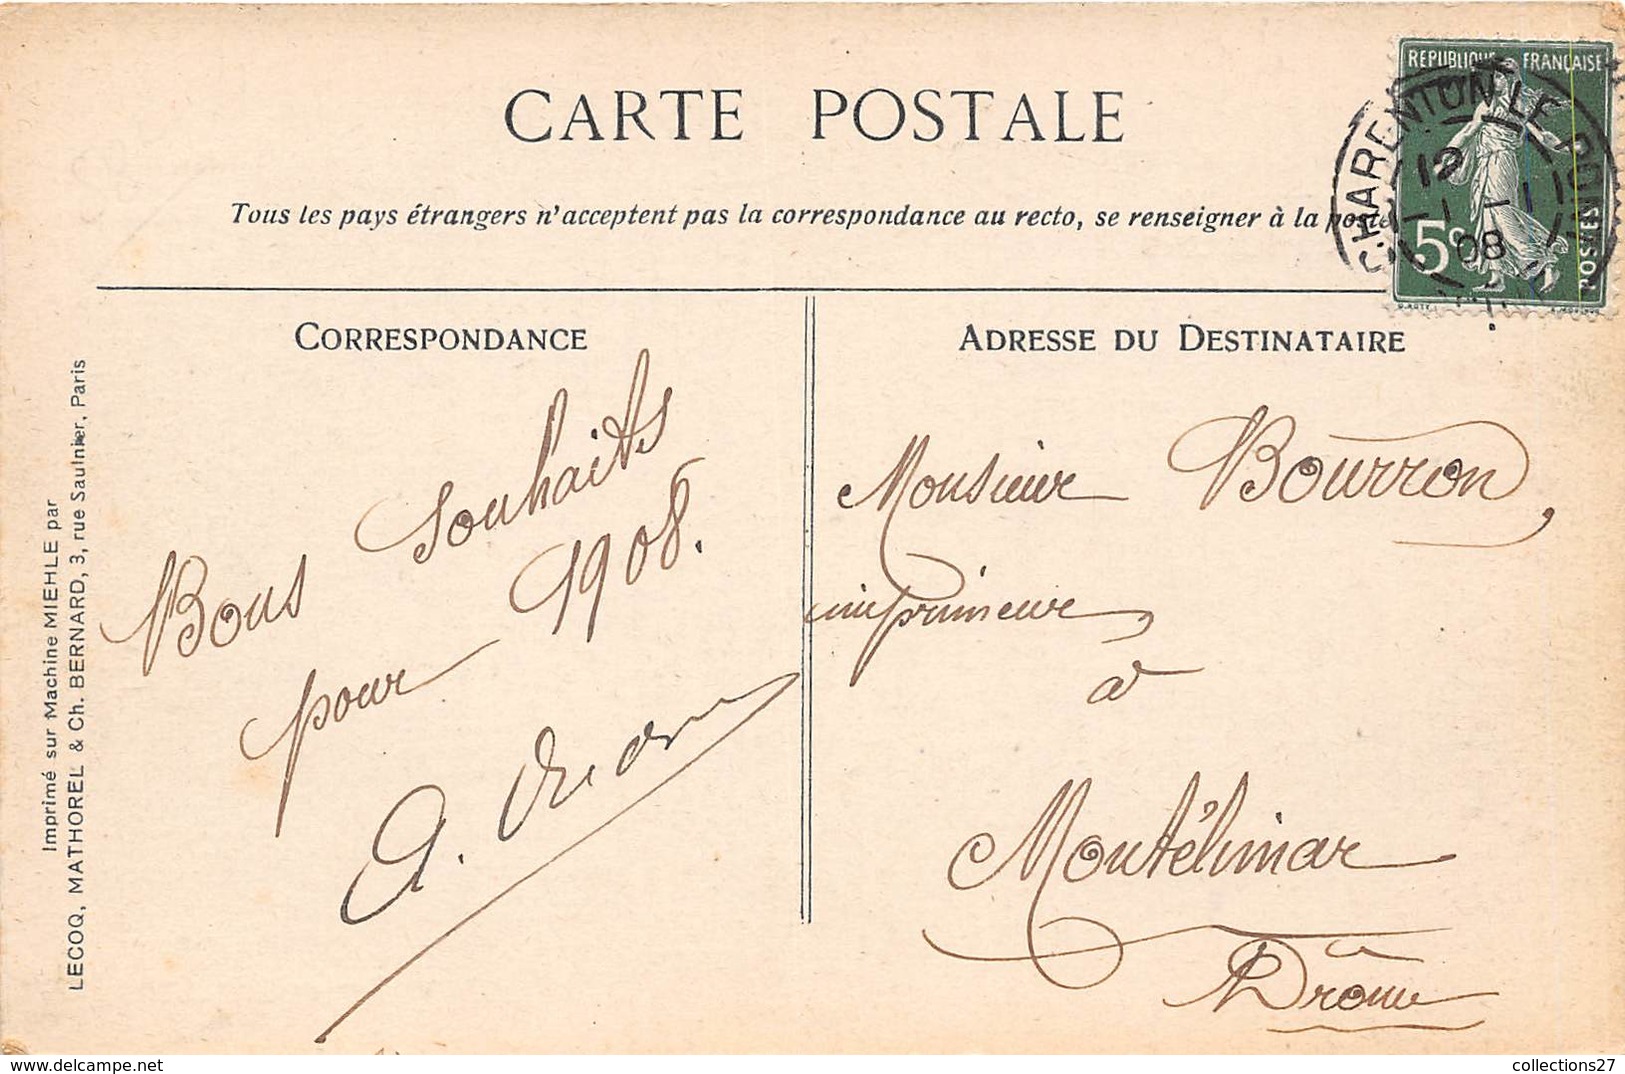 CARTE POSTALE
Tous les pays étrangers n'acceptent pas la correspondance au recto, se renseigner à la poste
REPUBLIQUE FRANÇAISE
5c
POSTES
CHARENTON LE PONT
12
1 - 1
08
CORRESPONDANCE
Bons souhaits
pour 1908.
A.
ADRESSE DU DESTINATAIRE
Monsieur Bourron,
imprimeur,
à
Montélimar
Drôme
Imprimé sur Machine MIEHLE par
LECOQ, MATHOREL & Ch. BERNARD, 3, rue Saulnier, Paris
collections27